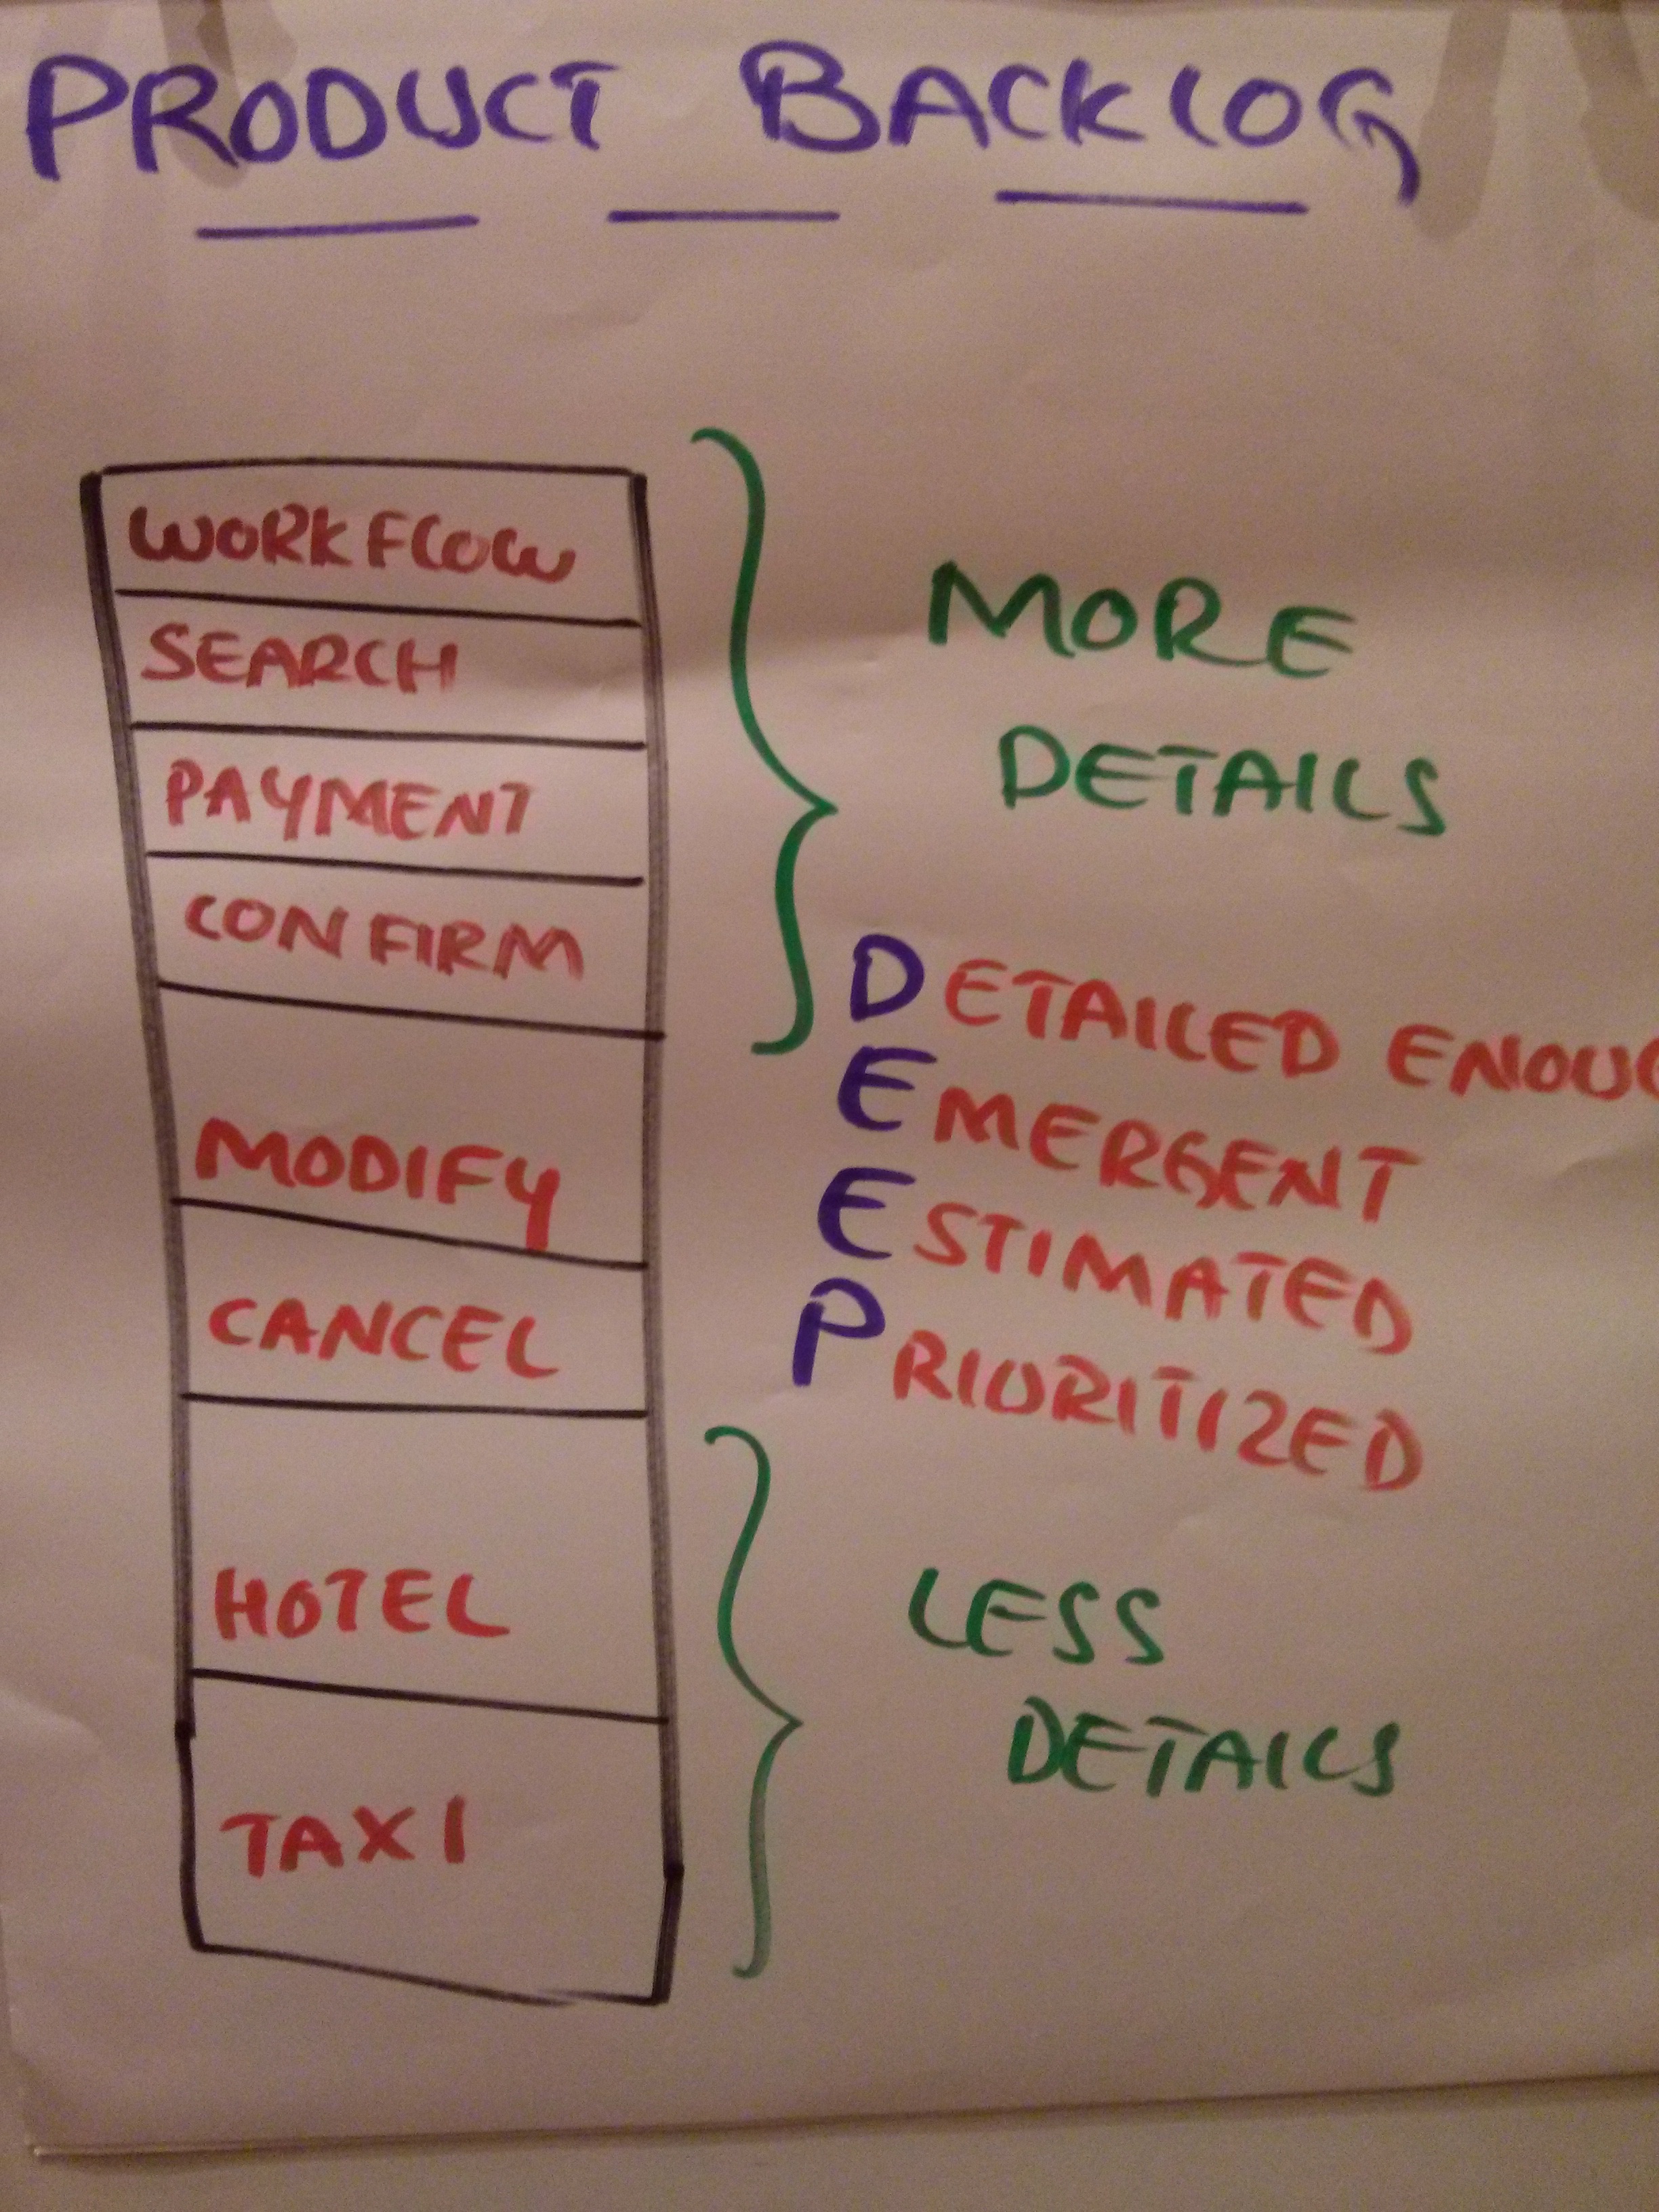 PRODUCT BACKLOG
WORKFLOW
SEARCH
PAYMENT
CONFIRM
MODIFY
CANCEL
HOTEL
TAXI
MORE
DETAILS
DETAILED
EMERGENT
ESTIMATED
PRIORITIZED
LESS
DETAILS